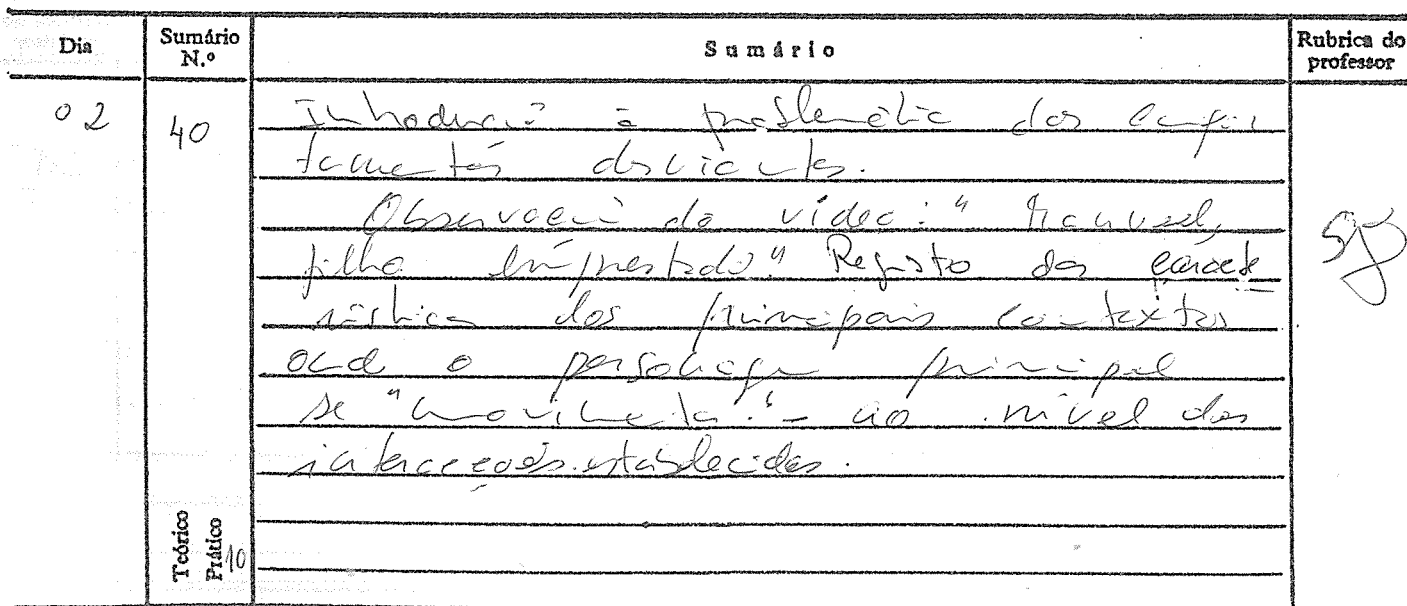 Dia Sumário N.º Sumário Rubrica do professor
02 40 Introdução à problemática dos compor
tamentos desviantes.
Observação do vídeo: "Manuel,
filho emprestado." Registo das caracte
rísticas dos principais contextos
onde o personagem principal
se "movimenta" - ao nível das
interacções estabelecidas.
Teórico
Prático 10